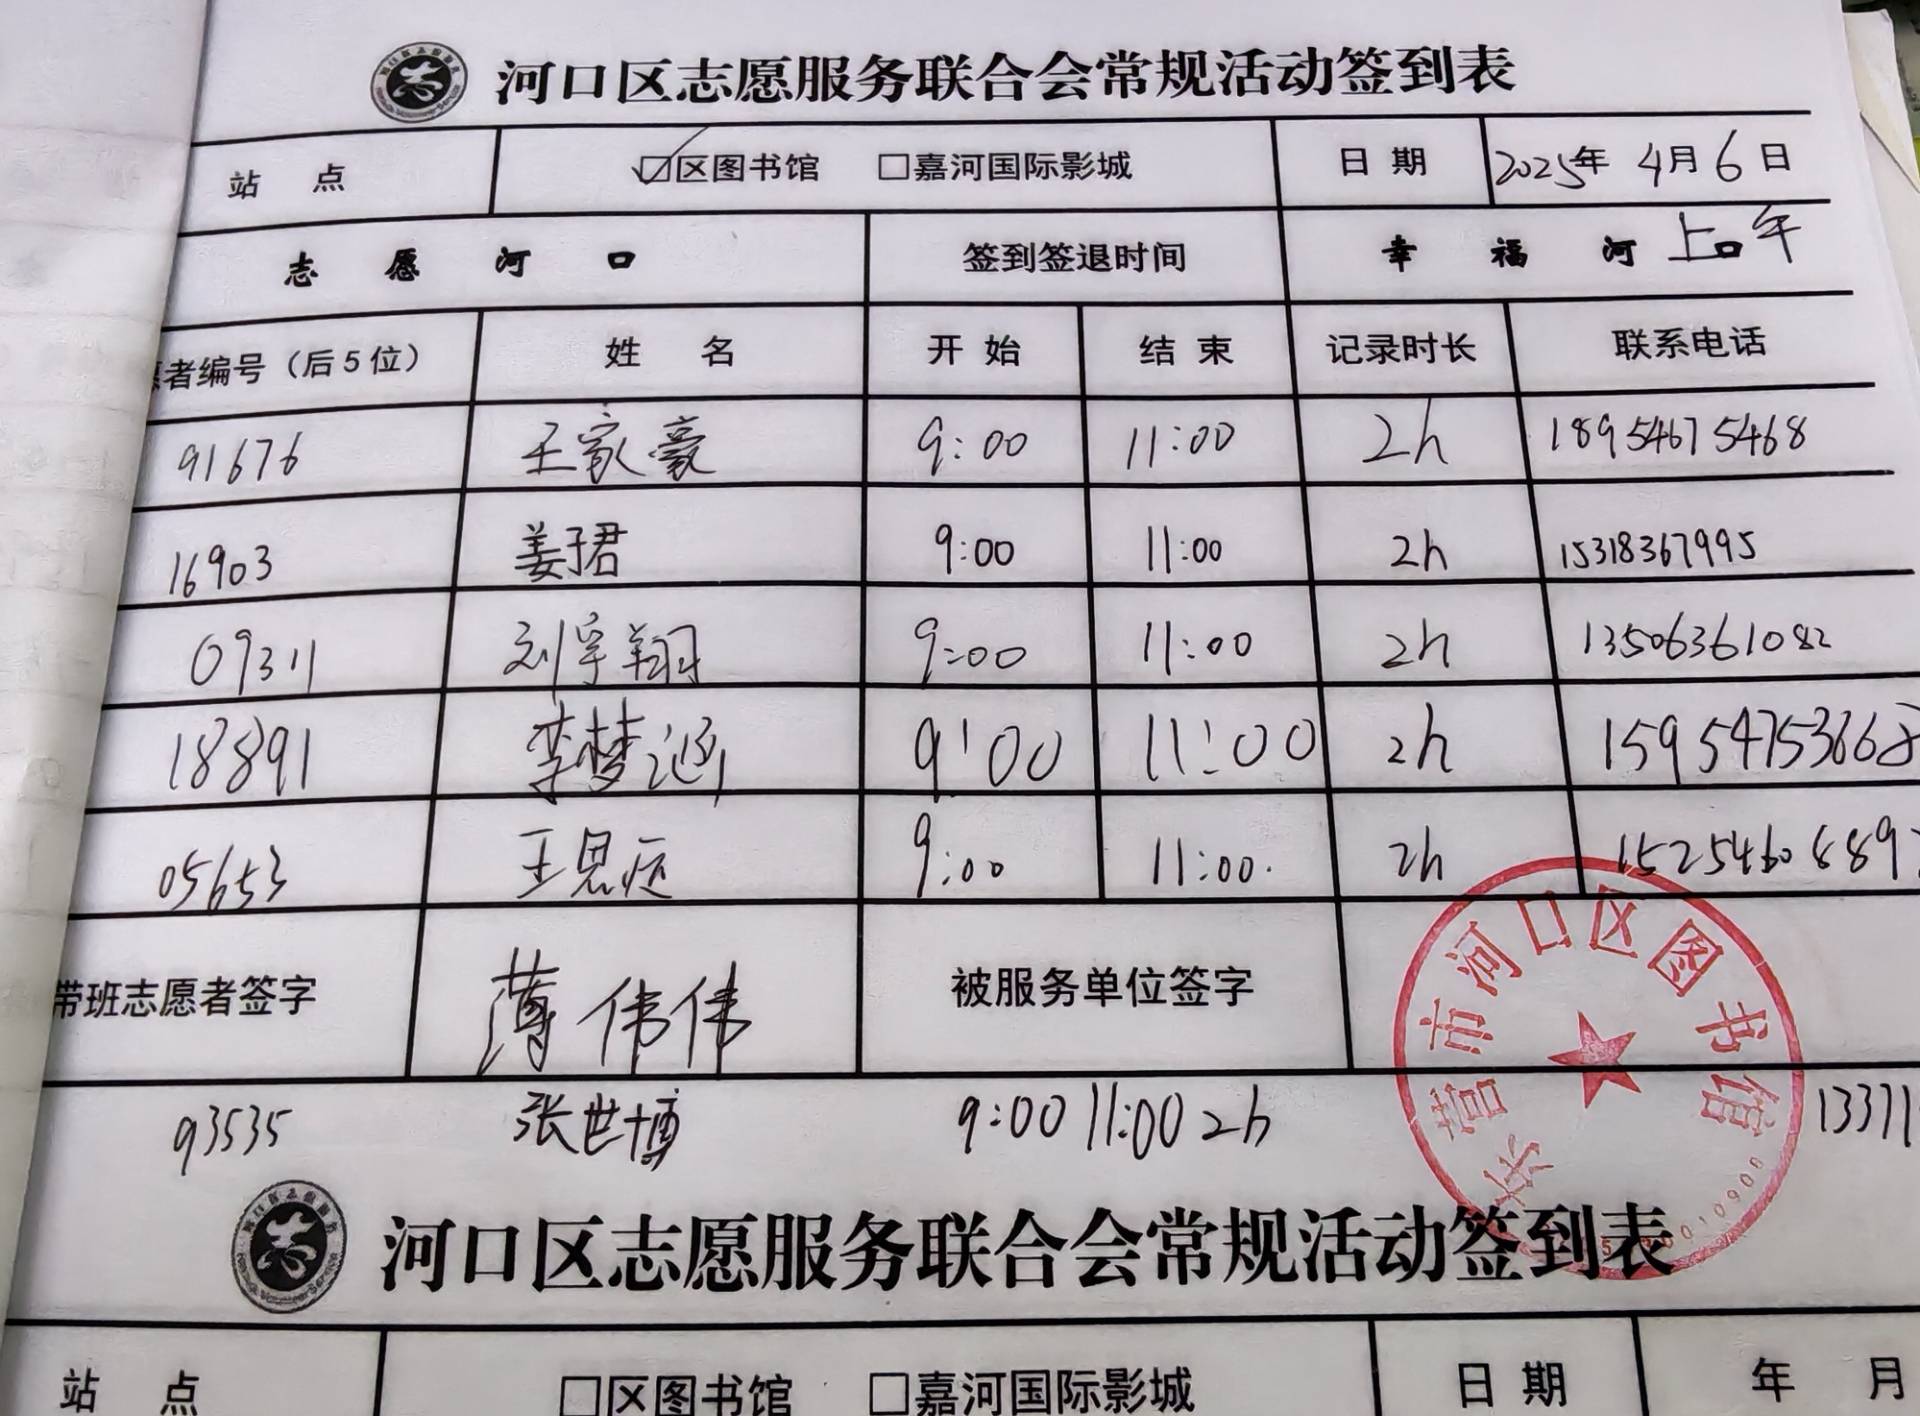 河口区志愿服务联合会常规活动签到表
站 点 ☑区图书馆 □嘉河国际影城 日 期 2025年 4月6日
志 愿 河 口 签到签退时间 幸 福 河 口 上午
愿者编号（后5位） 姓 名 开 始 结 束 记录时长 联系电话
91676 王家豪 9:00 11:00 2h 18954675468
16903 姜子君 9:00 11:00 2h 15318367995
09311 刘宇翔 9:00 11:00 2h 13506361082
18891 李梦涵 9:00 11:00 2h 15954753668
05653 王思远 9:00 11:00. 2h 1525460889
带班志愿者签字 薄伟伟 被服务单位签字
东营市河口区图书馆
93535 张世博 9:00 11:00 2h 13371
河口区志愿服务联合会常规活动签到表
站 点 □区图书馆 □嘉河国际影城 日 期 年 月